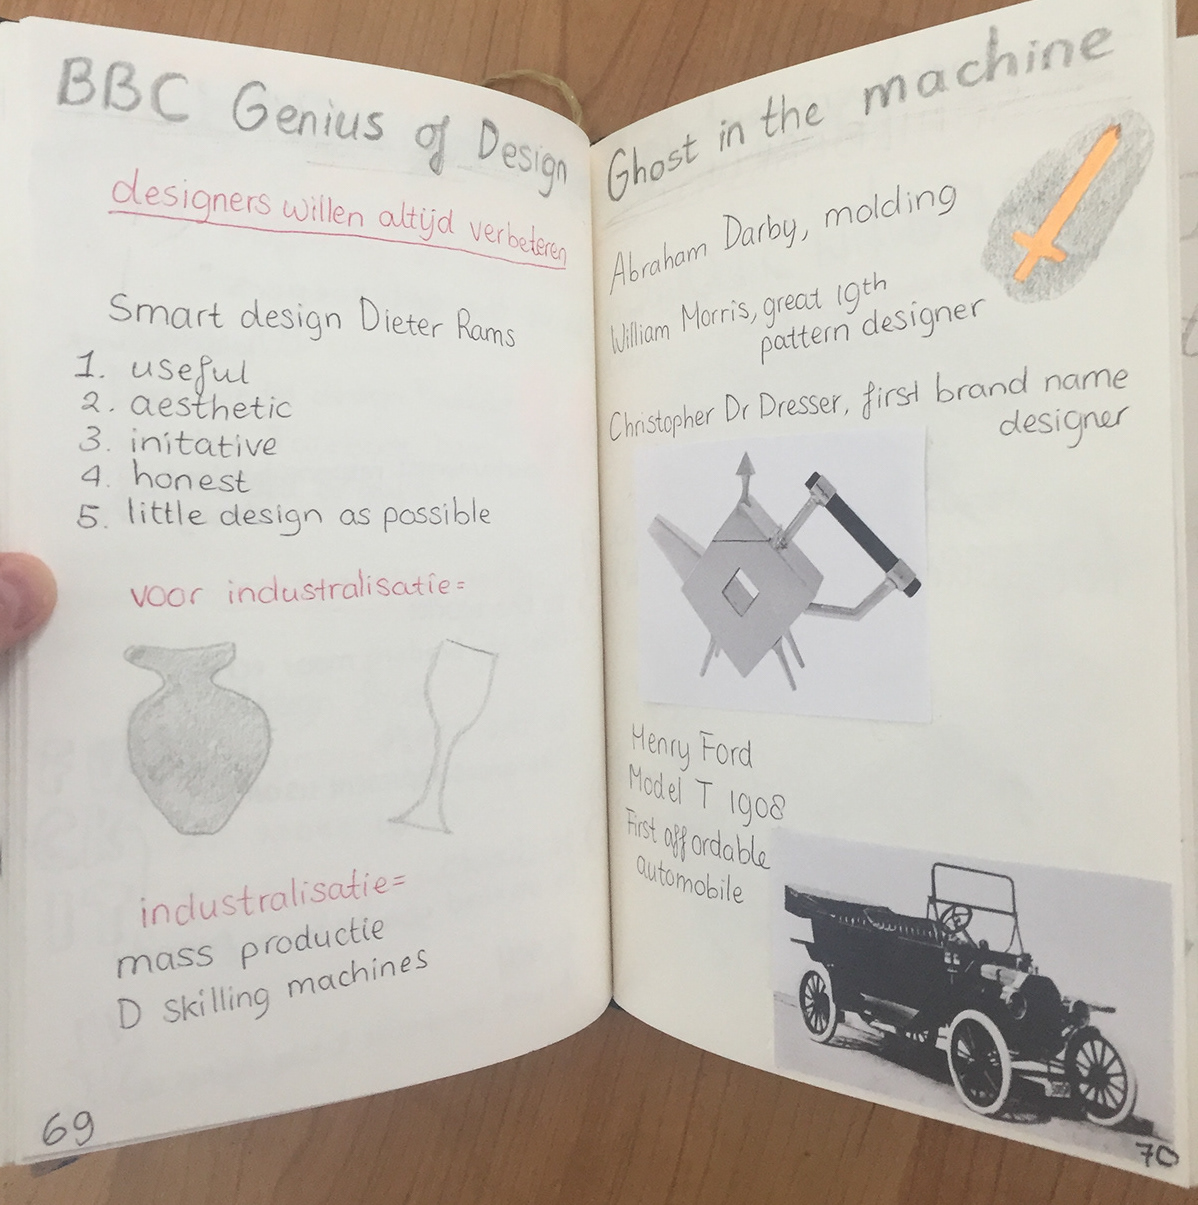 BBC Genius of Design
designers willen altijd verbeteren
Smart design Dieter Rams
1. useful
2. aesthetic
3. initative
4. honest
5. little design as possible
voor industralisatie=
industralisatie=
mass productie
D skilling machines
69
Ghost in the machine
Abraham Darby, molding
William Morris, great 19th
pattern designer
Christopher Dr Dresser, first brand name
designer
Henry Ford
Model T 1908
First affordable
automobile
70